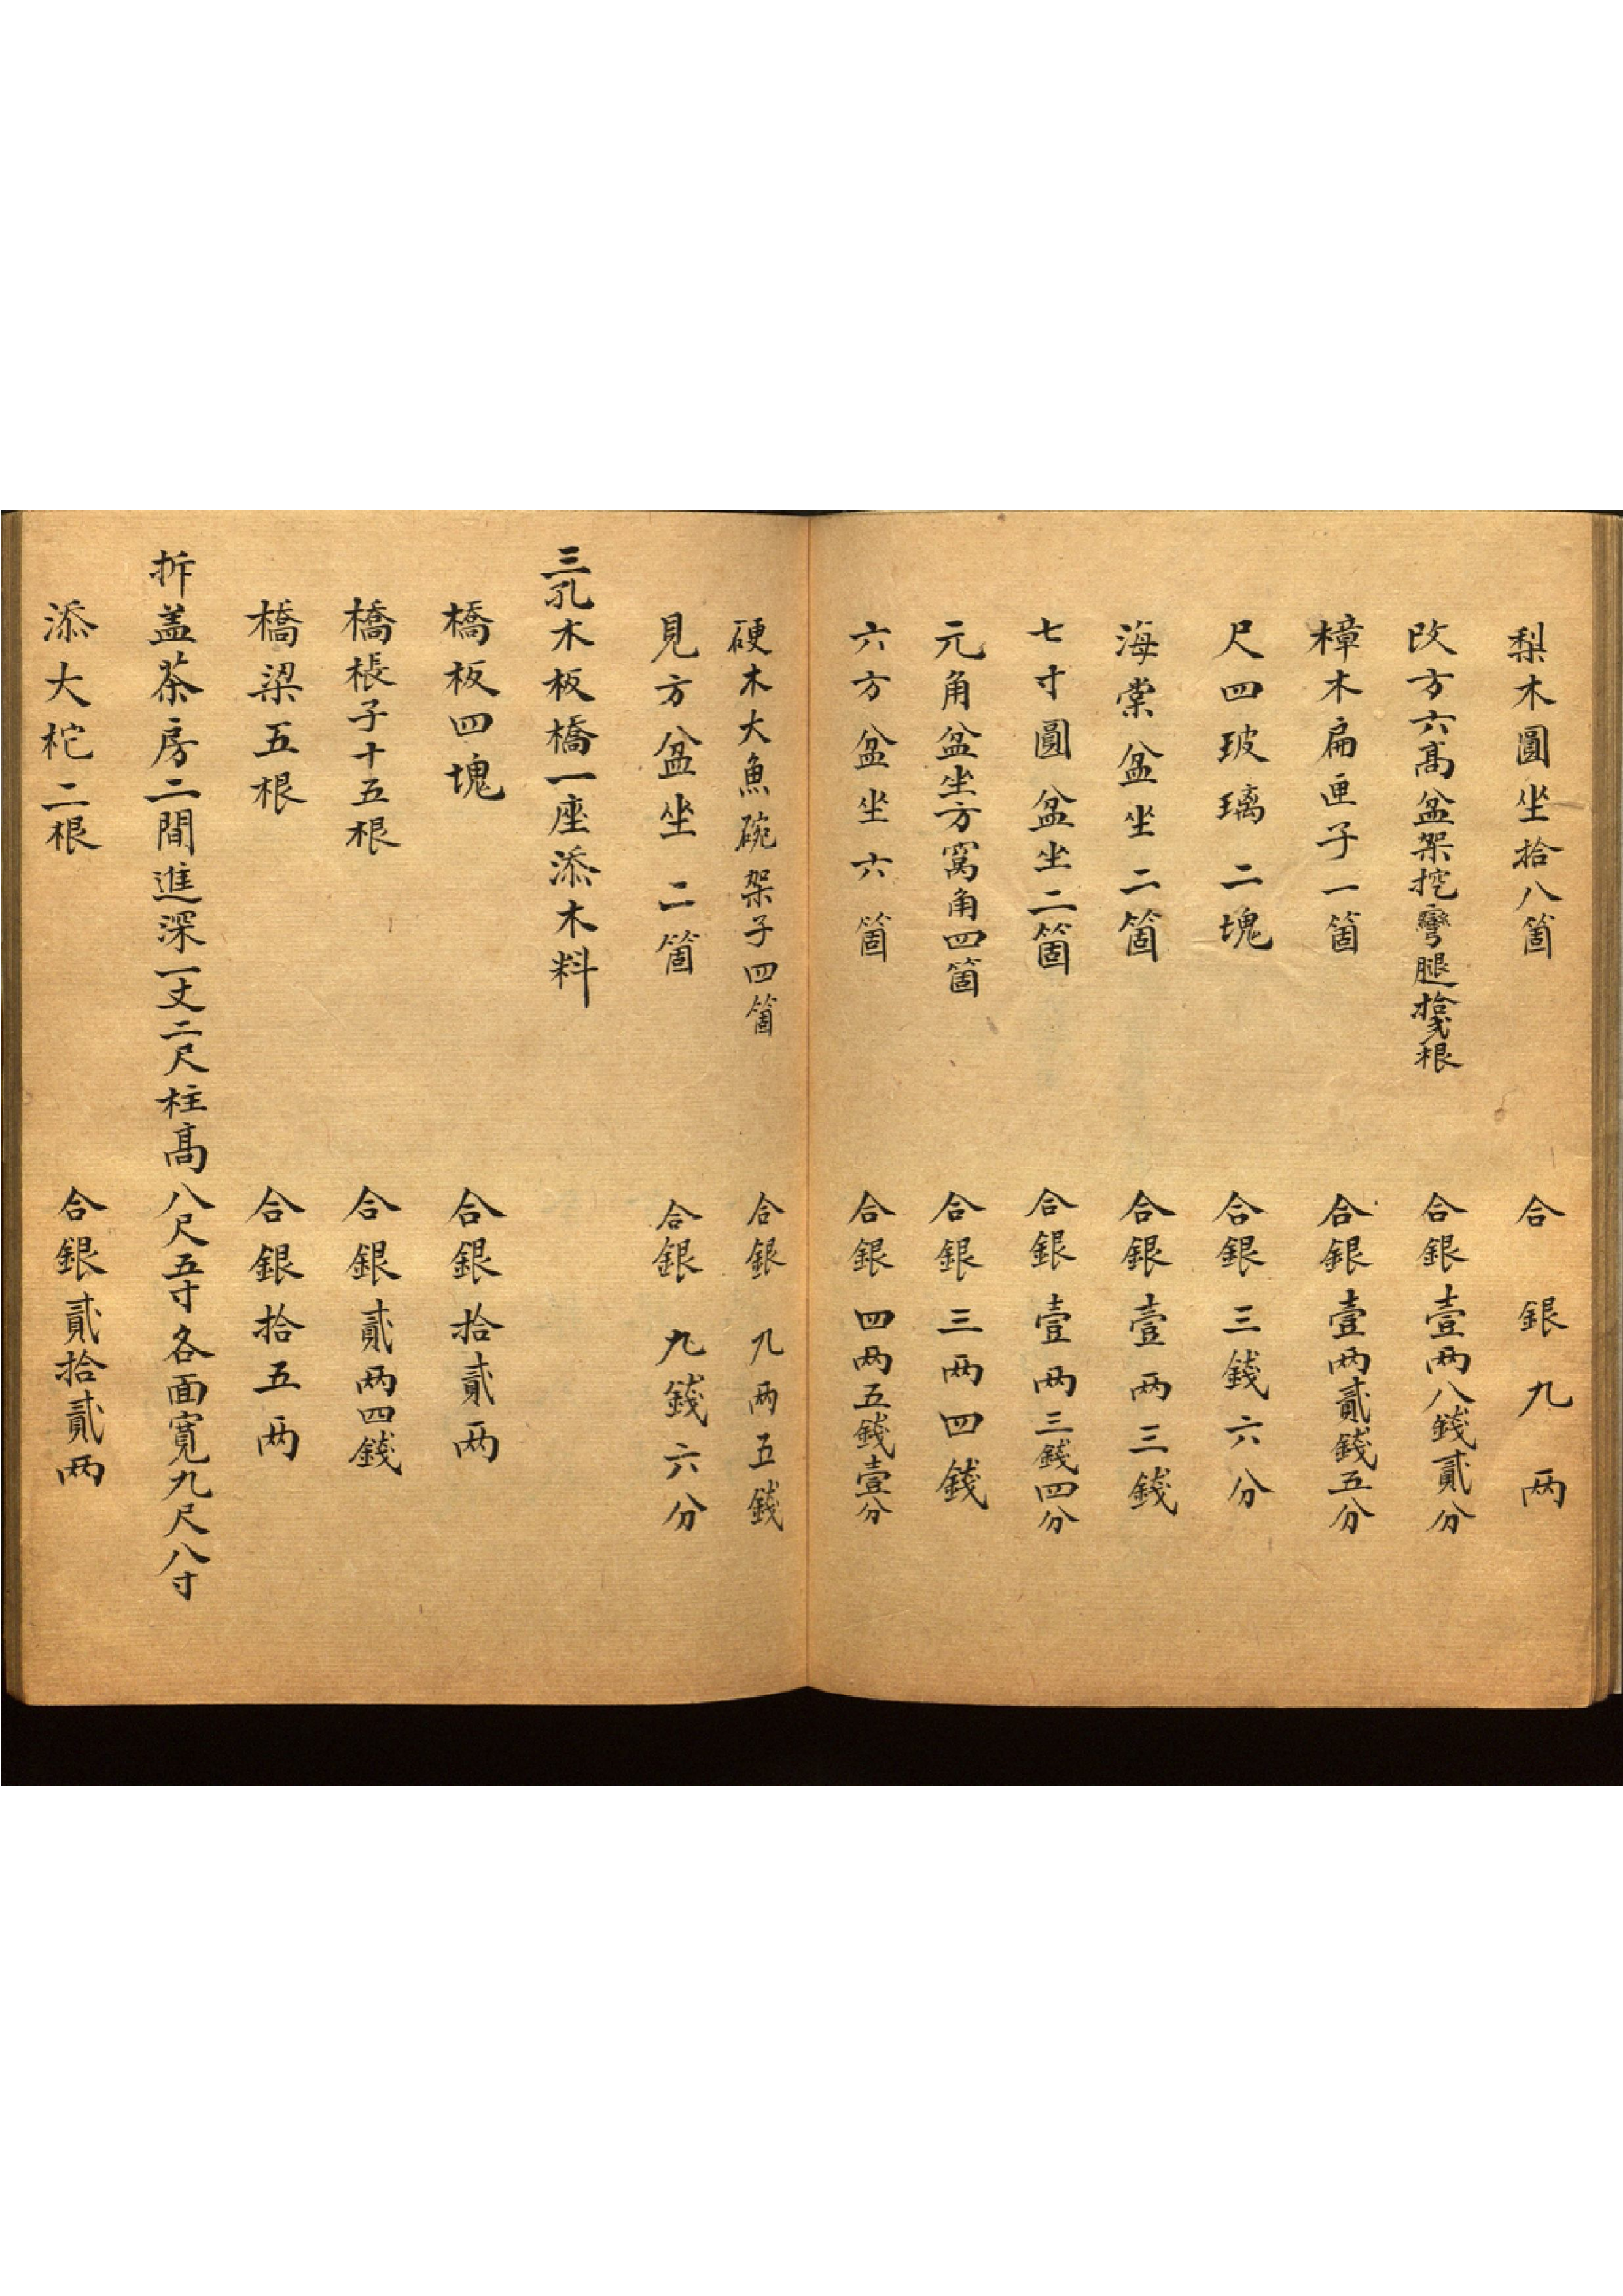 梨木圓坐拾八箇 合銀九两
改方六髙盆架挖彎腿拾貳根 合銀壹两八錢貳分
樟木扁匣子一箇 合銀壹两貳錢五分
尺四玻璃二塊 合銀三錢六分
海棠盆坐二箇 合銀壹两三錢
七寸圓盆坐二箇 合銀壹两三錢四分
元角盆坐方窩角四箇 合銀三两四錢
六方盆坐六箇 合銀四两五錢壹分
硬木大魚碗架子四箇 合銀九两五錢
見方盆坐二箇 合銀九錢六分
三孔木板橋一座添木料
橋板四塊 合銀拾貳两
橋桭子十五根 合銀貳两四錢
橋梁五根 合銀拾五两
拆盖茶房二間進深一丈二尺柱髙八尺五寸各面寬九尺八寸
添大柁二根 合銀貳拾貳两